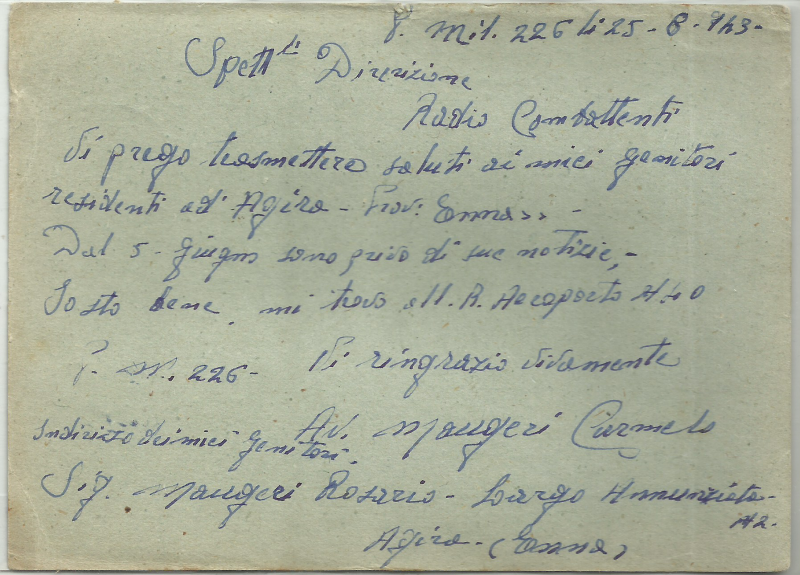 P. Mil. 226 li 25-8-943-
Spett.li Direzione
Radio Combattenti
Vi prego trasmettere saluti ai miei genitori
residenti ad Agira - Prov. Enna>> -
Dal 5 - giugno sono privo di sue notizie,-
Io sto bene, mi trovo all. R. Aeroporto 440
P. M. 226 - Vi ringrazio vivamente
Av. Maugeri Carmelo
Indirizzo dei miei genitori.
Sig. Maugeri Rosario - Largo Annunziata -
42.
Agira - (Enna)